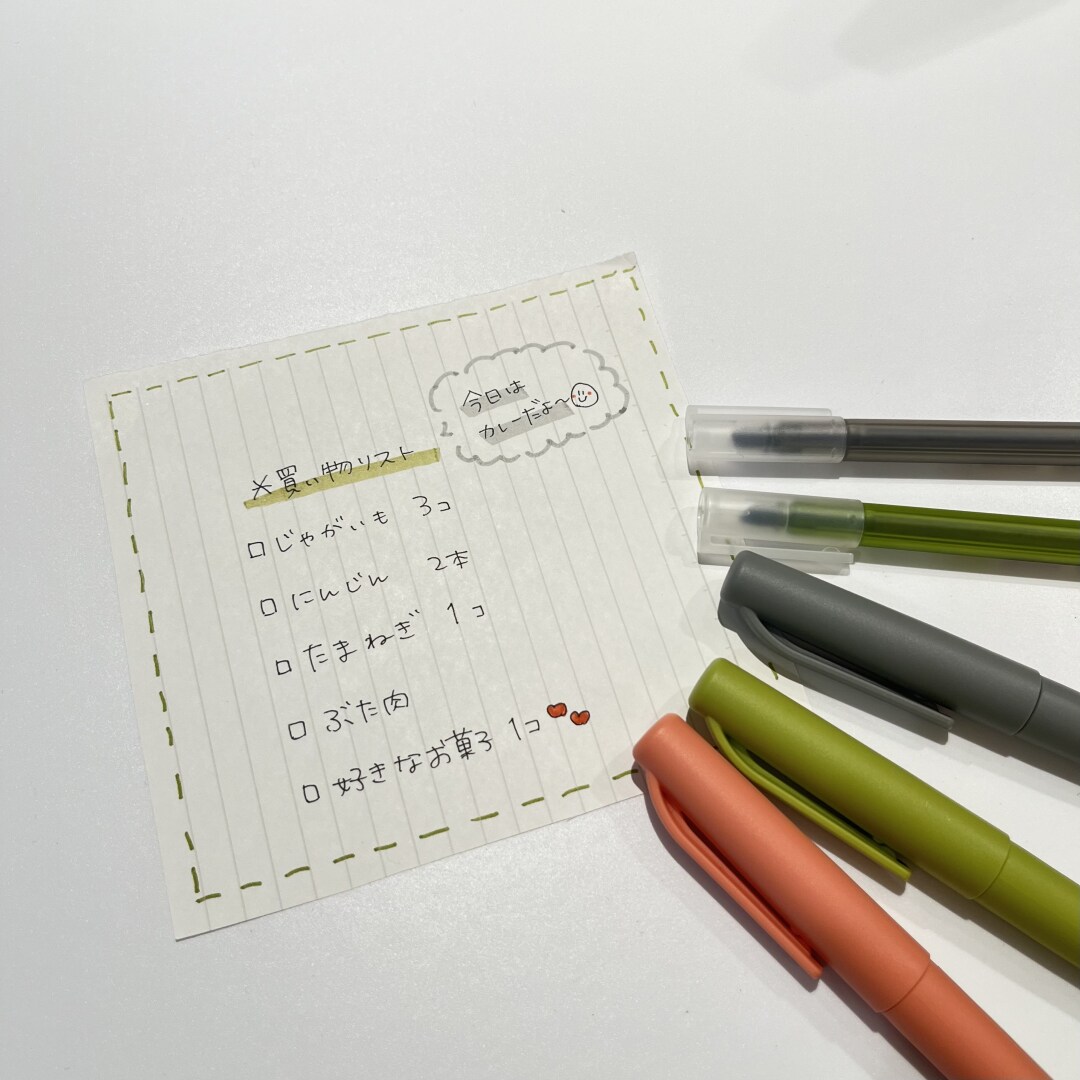 今日は
カレーだよ〜
※買い物リスト
□じゃがいも 3コ
□にんじん 2本
□たまねぎ 1コ
□ぶた肉
□好きなお菓子 1コ